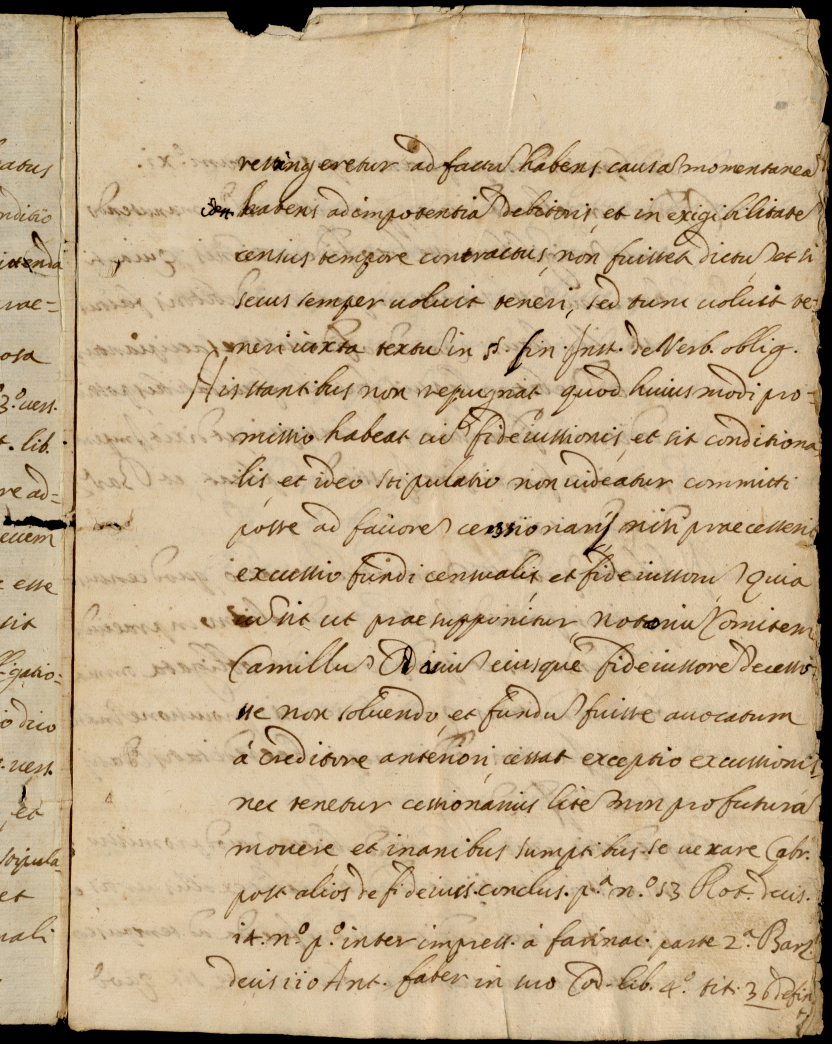 restringeretur ad factu habens causa momentanea
habens ad impotentia debitoris, et in exigibilitate
census tempore contractus, non fuisset dictu et si
secus semper voluit teneri, sed tunc voluit te-
neri iuxta textu in §. fin. Inst. de Verb. oblig.
His stantibus non repugnat quod huiusmodi pro-
missio habeat vi fideiussionis, et sit conditiona
lis, et ideo stipulatio non videatur committi
posse ad favore cessionarij nisi praecesserit
excussio fundi censualis et fideiussoru quia
cu sit ut praesupponitur notoriu Comitem
Camillu eiusque fideiussore decessi-
sse non solvendo, et fundu fuisse avocatum
à creditore anteriori, cessat exceptio excussionis
nec tenetur cessionarius lite non profutura
movere et inanibus sumptibus se vexare Cabr.
post alios de fideiuss. conclus. p.ª n.º 53 Rot. decis.
14. n.º p.º inter impress. à farinac. parte 2.ª Barz.
decis 110 Ant. faber in suo Cod. lib. 4.º tit. 36 defin
atus
nditio
ittenda
rae=
osa
3.º vers.
t. lib.
re ad=
esse
sit
gatio-
o dico
vers.
et
stipula-
et
nali